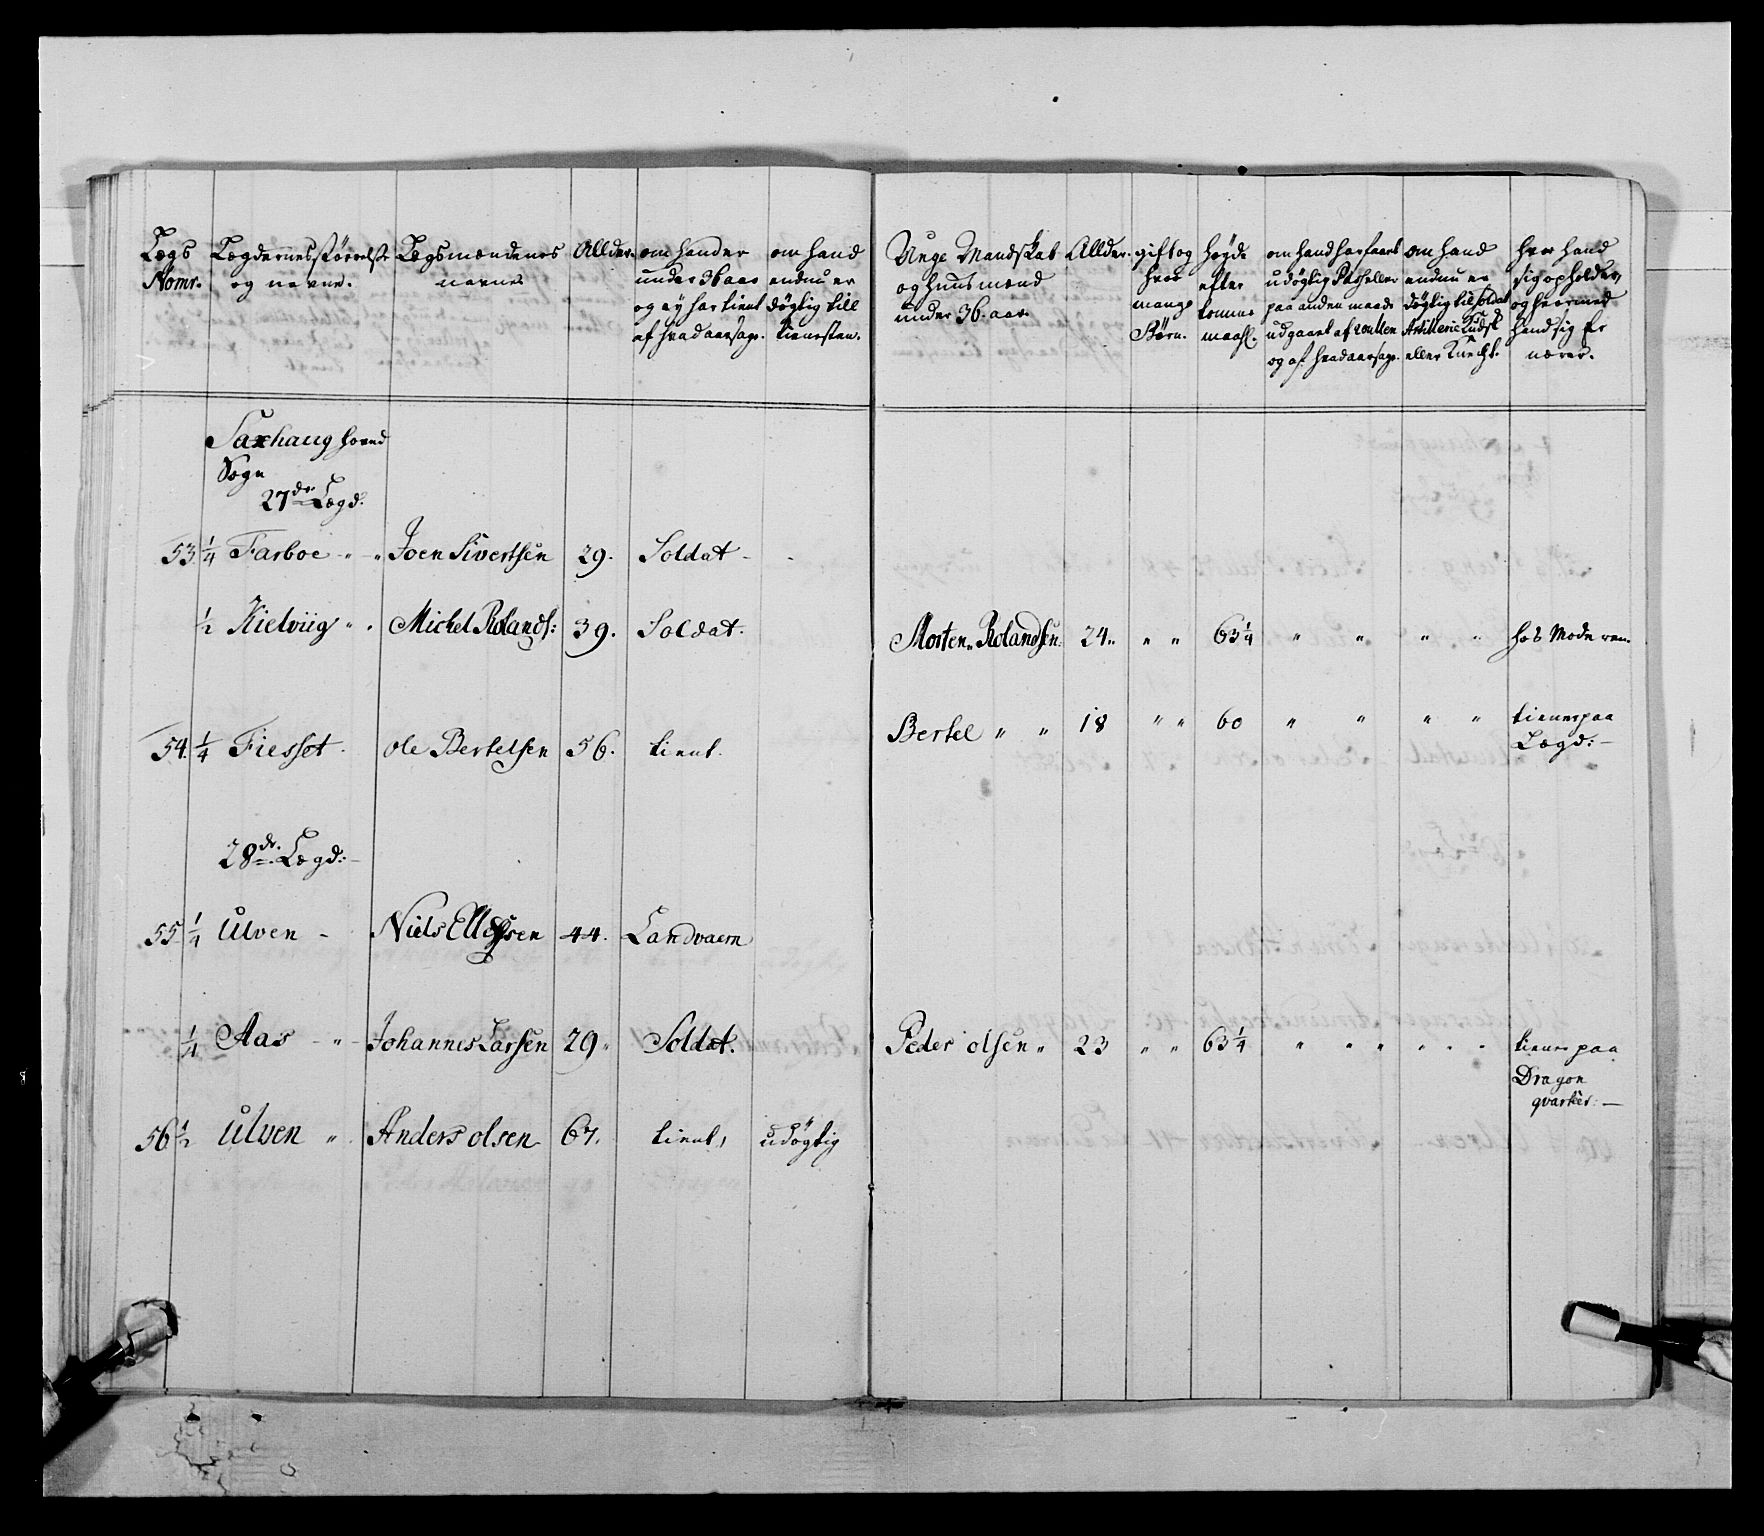 Lægs Nomr. Lægdernes størrelse og navne. Lægsmændenes navne Allder. om hand er under 36 aar og ey har tient af hvad aarsage. om hand endnu er døgtig till tienesten. Unge Mandskab og huusmænd under 36. aar. Allder. gift og hvor mange Børn. høgde efter tomme maahl. om hand har faaet udøgtig Pas heller paa anden maade udgaaet af roullen og af hvad aarsage. om hand endnu er døgtig til Soldat Artillerie Kudsk eller Knecht. hvor hand sig opholder, og hvormed hand sig Er nærer.
Saxhaug hoved
Sogn
27de Lægd:
53 1/4 Farboe " " Joen Sivertsen 29. Soldat -
1/2 Kielviig " . Michel Rolands: 39. Soldat. Morten " Rolandsen 24 " " " 63 1/4 " " " " hos Moderen.
54. 1/4 Fiesset . ole Bertelsen 56. tient. Bertel " " 18 " " 60 " " " " tiener paa
Lægd: -
28de Lægd: -
55 1/4 Ulven - Niels Ellefsen 44. Landvaern
1/4 Aas - " - Johannes Larsen 29 " Soldat. Peder olsen " 23 " " 63 1/4 " " " " " " tiener paa
Dragon
qvarteer: -
56 1/2 Ulven " Anders olsen 67. tient, udøgtig